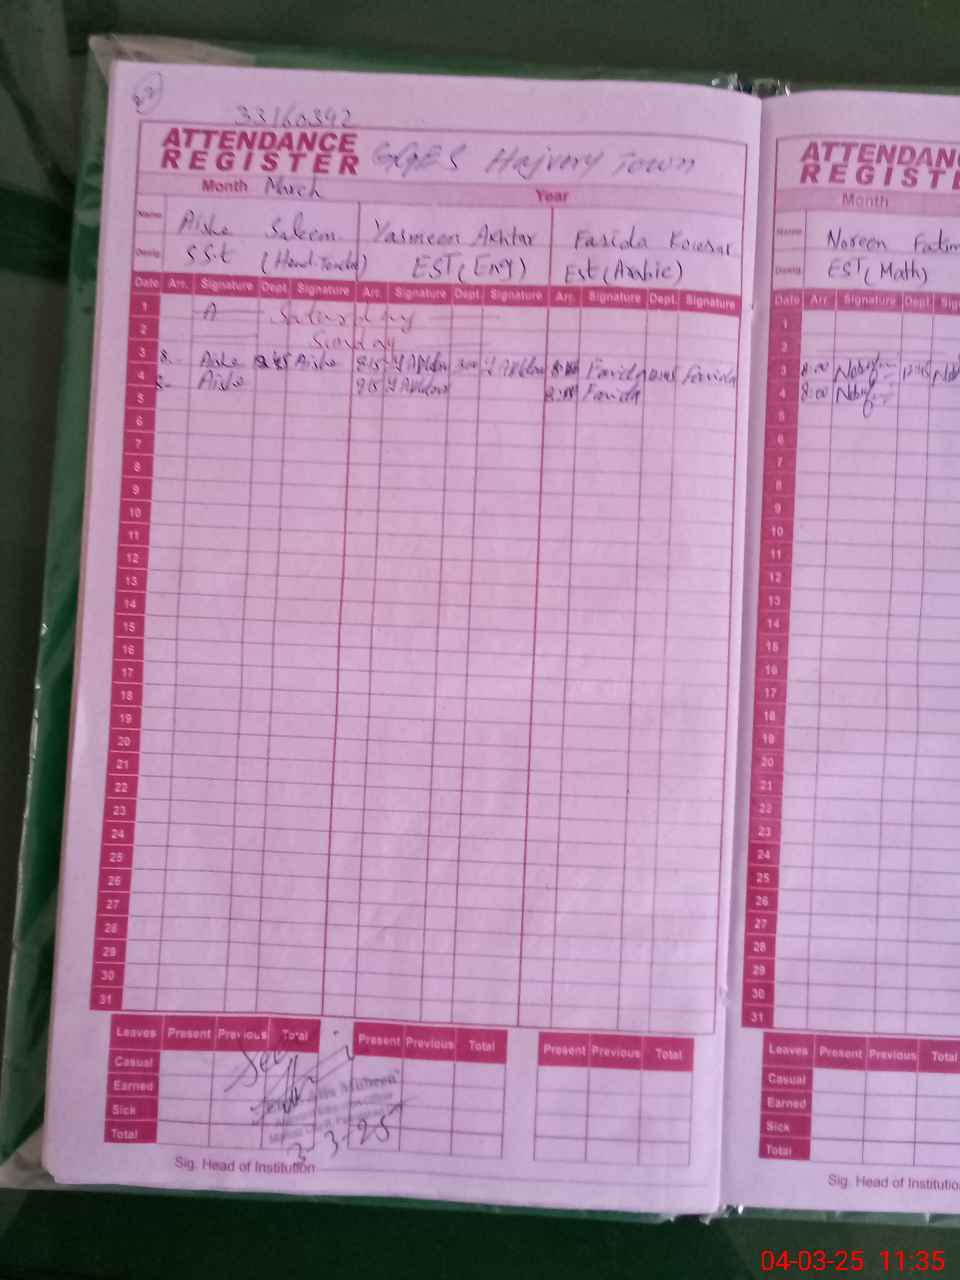 22
33160392
ATTENDANCE
REGISTER GGES Hajvery Town
Month March Year
Name Aisha Saleem Yasmeen Akhtar Farida Kousar
Desig S.S.t (Head Teacher) EST (Eng) Est (Arabic)
Date Arr. Signature Dept Signature Arr. Signature Dept Signature Arr. Signature Dept. Signature
1 Saturday
2 Sunday
3 Aisha Aisha 8:15 Y Akhtar Y Akhtar Farida Farida
4 Aisha Y Akhtar 8:00 Farida
5
6
7
8
9
10
11
12
13
14
15
16
17
18
19
20
21
22
23
24
25
26
27
28
29
30
31
Leaves Present Previous Total Present Previous Total Present Previous Total
Casual
Earned
Sick
Total
3-3-25
Sig. Head of Institution
ATTENDAN
REGISTE
Month
Name Noreen Fatim
Desig EST (Math)
Date Arr. Signature Dept Sig
1
2
3 8:00
4 8:00
5
6
7
8
9
10
11
12
13
14
15
16
17
18
19
20
21
22
23
24
25
26
27
28
29
30
31
Leaves Present Previous Total
Casual
Earned
Sick
Total
Sig. Head of Institutio
04-03-25 11:35